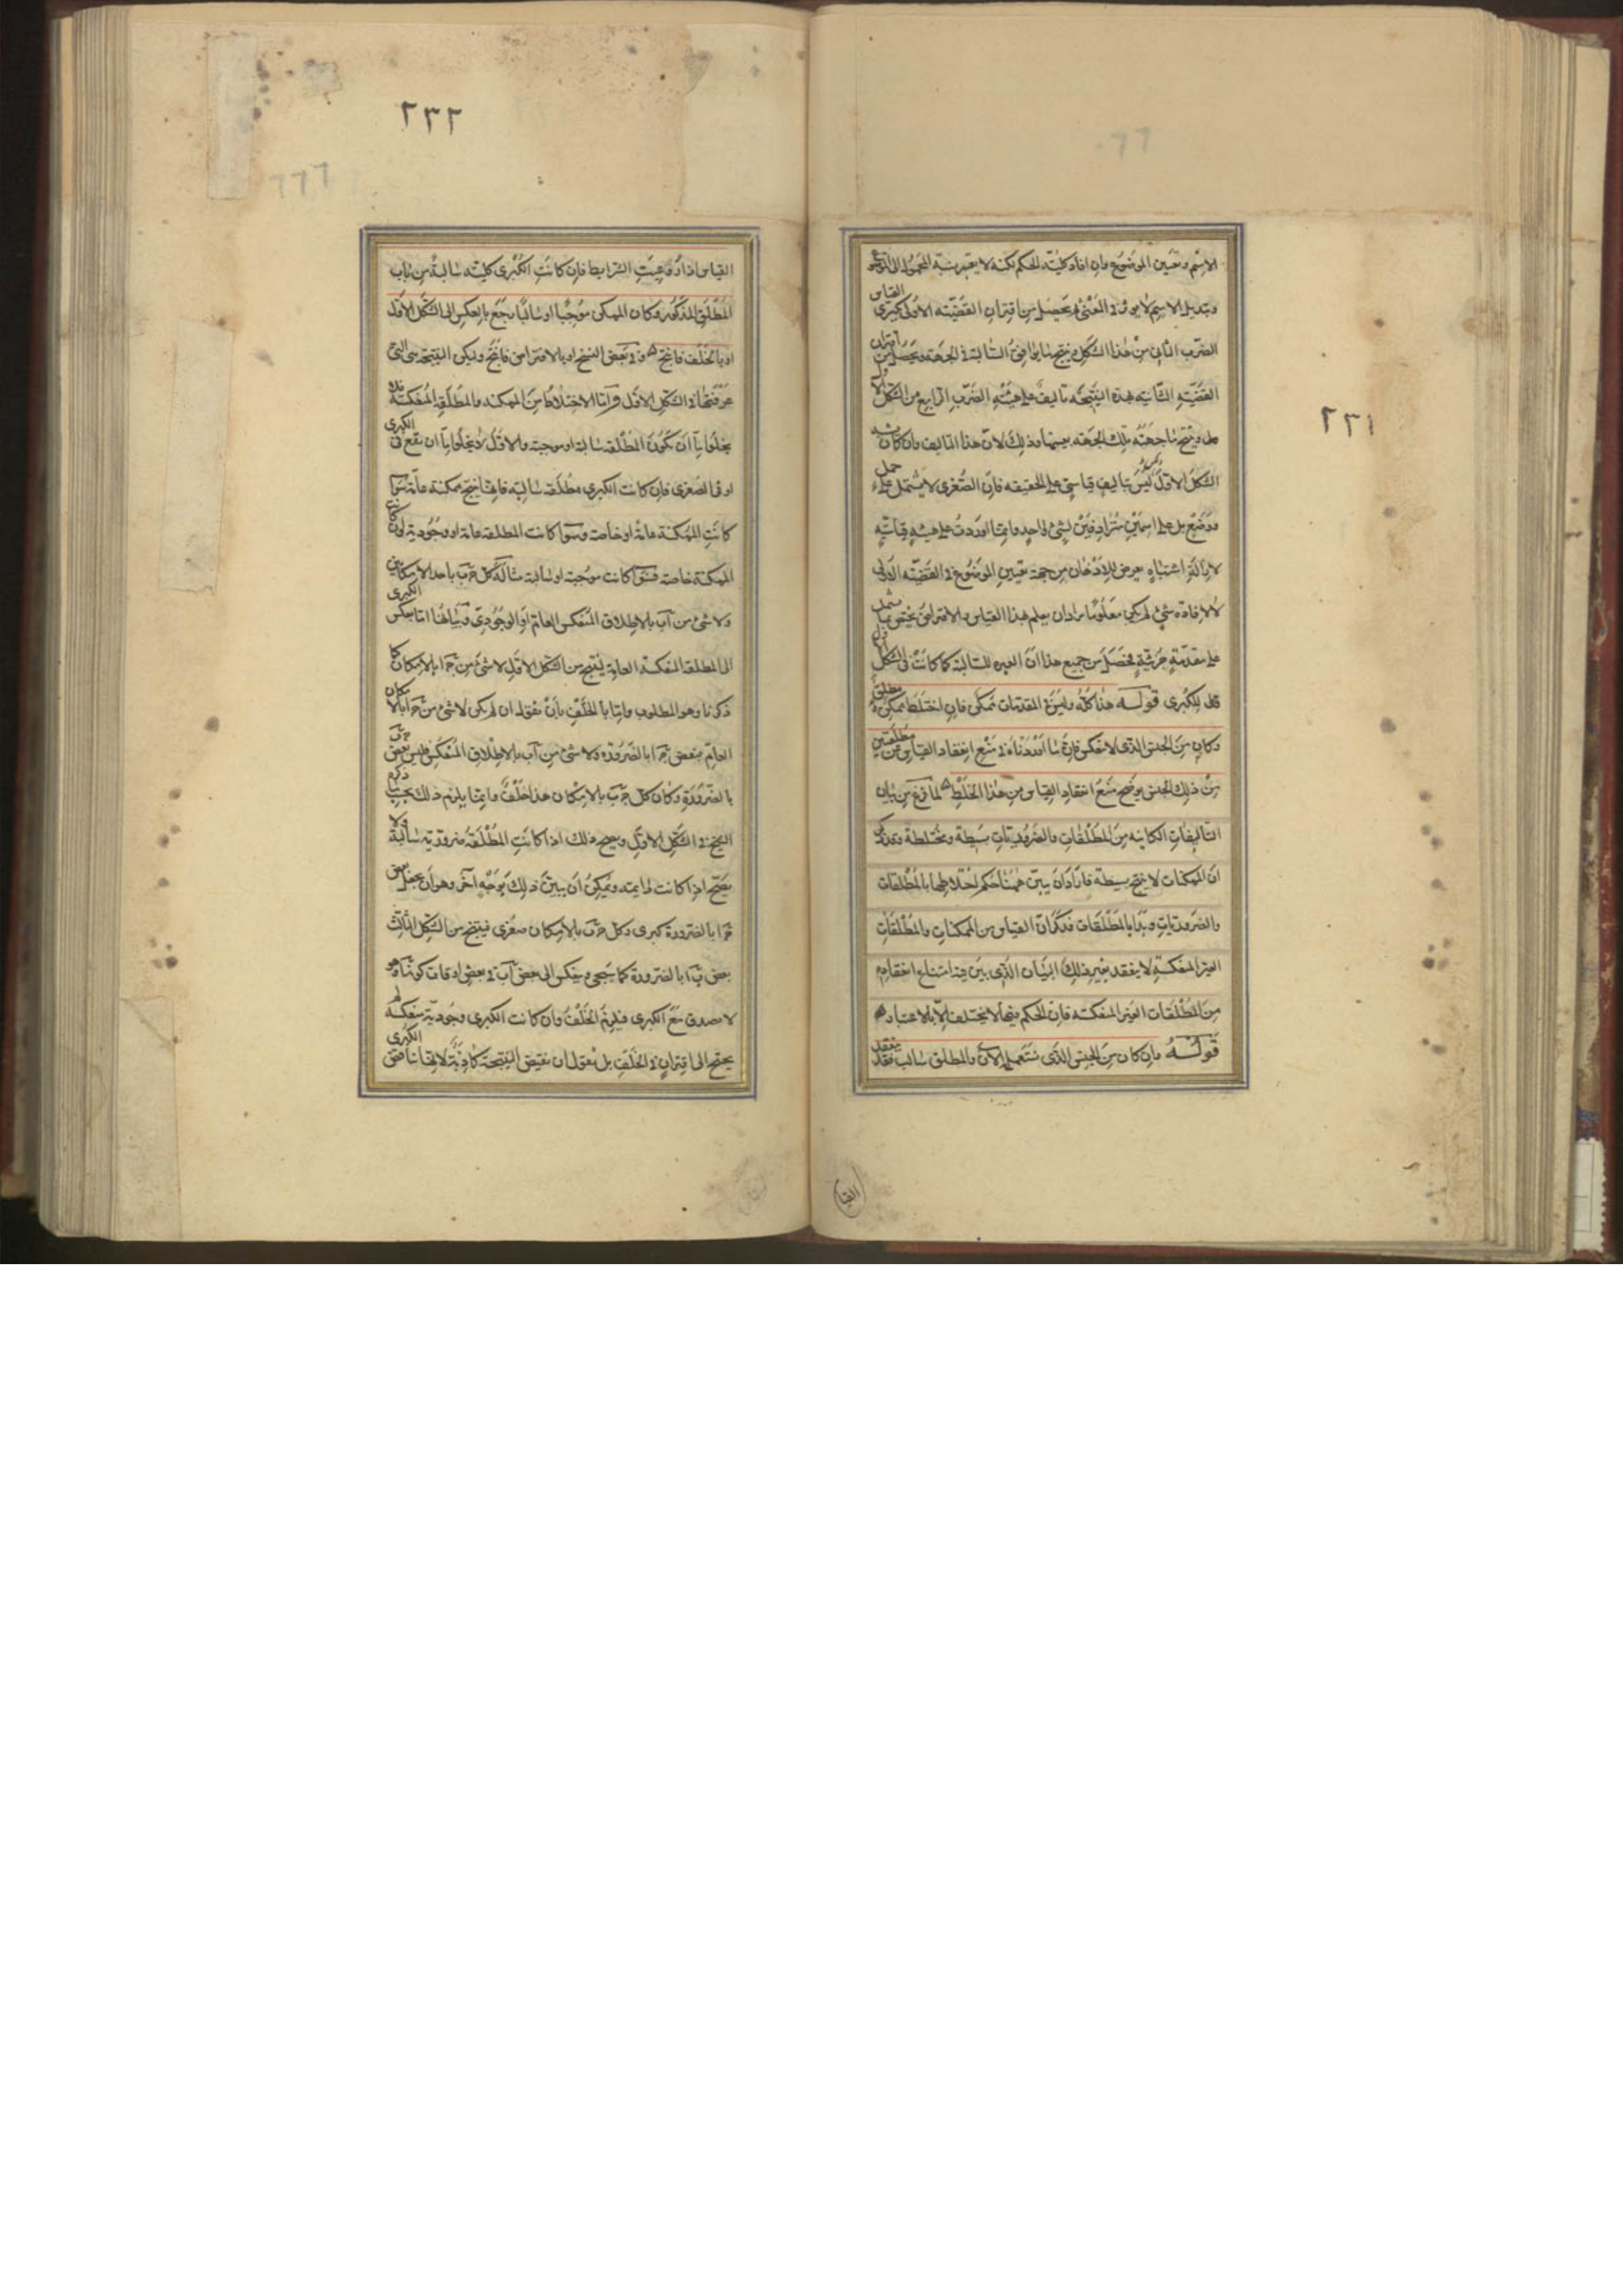 ٢٣١
الاسم وتعين الموضوع فان افاد كلية الحكم لكنه لا يغير نسبة المحمول الى الموضوع
وتبديل الاسم لا يؤثر فى المعنى ثم يحصل من اقتران القضيته الاولى كبرى القياس
الضرب الثانى من هذا الشكل وينتج ما يوافق السالبة فى الجهة ويحصل من اقتران
القضيته الثانيه بهذه النتيجه تاليف على هيئة الضرب الرابع من الشكل الاول
وينتج ما جهته تلك الجهة بعينها وذلك لان هذا التاليف وان كان يشبه
الشكل الاول ليس بتاليف قياسى على الحقيقه فان الصغرى لا يشتمل على حمل
ووضع بل على اسمين مترادفين لشئ واحد وانما اوردت على هيئة قياسية
لازالة اشتباه يعرض للاذهان من جهة تعيين الموضوع فى القضيته الاولى
لا لافادة شئ لم يكن معلوما مراد ان يعلم هذا القياس والافتراض يختص بما يشتمل
على مقدمة جزئية فحصل من جميع هذا ان العبرة للسالبة كما كانت فى الشكل الاول
للكبرى قوله هذا كله وليس فى المقدمات ممكن فان اختلط ممكن ومطلق
وكان من الجنس الذى لا ينعكس فان ما اوردناه فى منع انعقاد القياس من مطلقتين
من ذلك الجنس يوضح منع انعقاد القياس من هذا الخلط لما فرغ من بيان
التاليفات الكاينه من المطلقات والضروريات بسيطة ومختلطة وذكر
ان الممكنات لا تنتج بسيطة فاراد ان يبين ههنا حكم اختلاطها بالمطلقات
والضروريات وبدا بالمطلقات فذكر ان القياس من الممكنات والمطلقات
الغير المنعكسة لا ينعقد بغير ذلك البيان الذى بين فيه امتناع انعقاده
من المطلقات الغير المنعكسة فان الحكم فيها لا يختلف الا بالاعتبار
قوله وان كان من الجنس الذى نستعمله الآن والمطلق سالب فقد ينعقد
القيا
٢٣٢
القياس اذا روعيت الشرايط فان كانت الكبرى كلية سالبة من باب
المطلق المذكور وكان الممكن موجبا او سالبا يرجع بالعكس الى الشكل الاول
او بالخلف فانتج وفى بعض النسخ او بالافتراض فانتج وليكن النتيجة هى التى
عرفتها فى الشكل الاول اما الاختلاط من الممكنه والمطلقه المنعكسة فلا
يخلوا اما ان تكون المطلقه سالبة او موجبة والاول لا يخلوا اما ان تقع فى الكبرى
او فى الصغرى فان كانت الكبرى مطلقه سالبة فانها ينتج ممكنة عامة سواء
كانت الممكنة عامة او خاصة وسواء كانت المطلقه عامة او وجودية وان كانت
الممكنة خاصة فسواء كانت موجبة او سالبة مثاله كل جَ بَ باحد الامكانين
ولا شئ من آ بَ بالاطلاق المنعكس العام او الوجودى وبيانها اما بعكس الكبرى
الى المطلقه المنعكسة العامة لينتج من الشكل الاول لا شئ من جَ آ بالامكان كما
ذكرنا وهو المطلوب واما بالخلف بان نقول ان لم يكن لا شئ من جَ آ بالامكان
العام فبعض جَ آ بالضروره ولا شئ من آ بَ بالاطلاق المنعكس فليس بعض جَ بَ
بالضرورة وكان كل جَ بَ بالامكان هذا خلف وانما يلزم ذلك بحسب ما ذكره
الشيخ فى الشكل الاول ويصح ذلك اذا كانت المطلقة ضرورية سالبة ولا
يصح اذا كانت دايمة ويمكن ان يبين ذلك بوجه آخر وهو ان نجعل بعض
جَ آ بالضرورة كبرى وكل جَ بَ بالامكان صغرى فينتج من الشكل الثالث
بعض بَ آ بالضرورة كما سيجئ وينعكس الى بعض آ بَ فى بعض اوقات كونه آ وهو
لا يصدق مع الكبرى فيلزم الخلف وان كانت الكبرى وجودية منعكسة لم
يحتج الى اقتران فى الخلف بل نقول ان نقيض النتيجة كاذبة لانها تناقض الكبرى